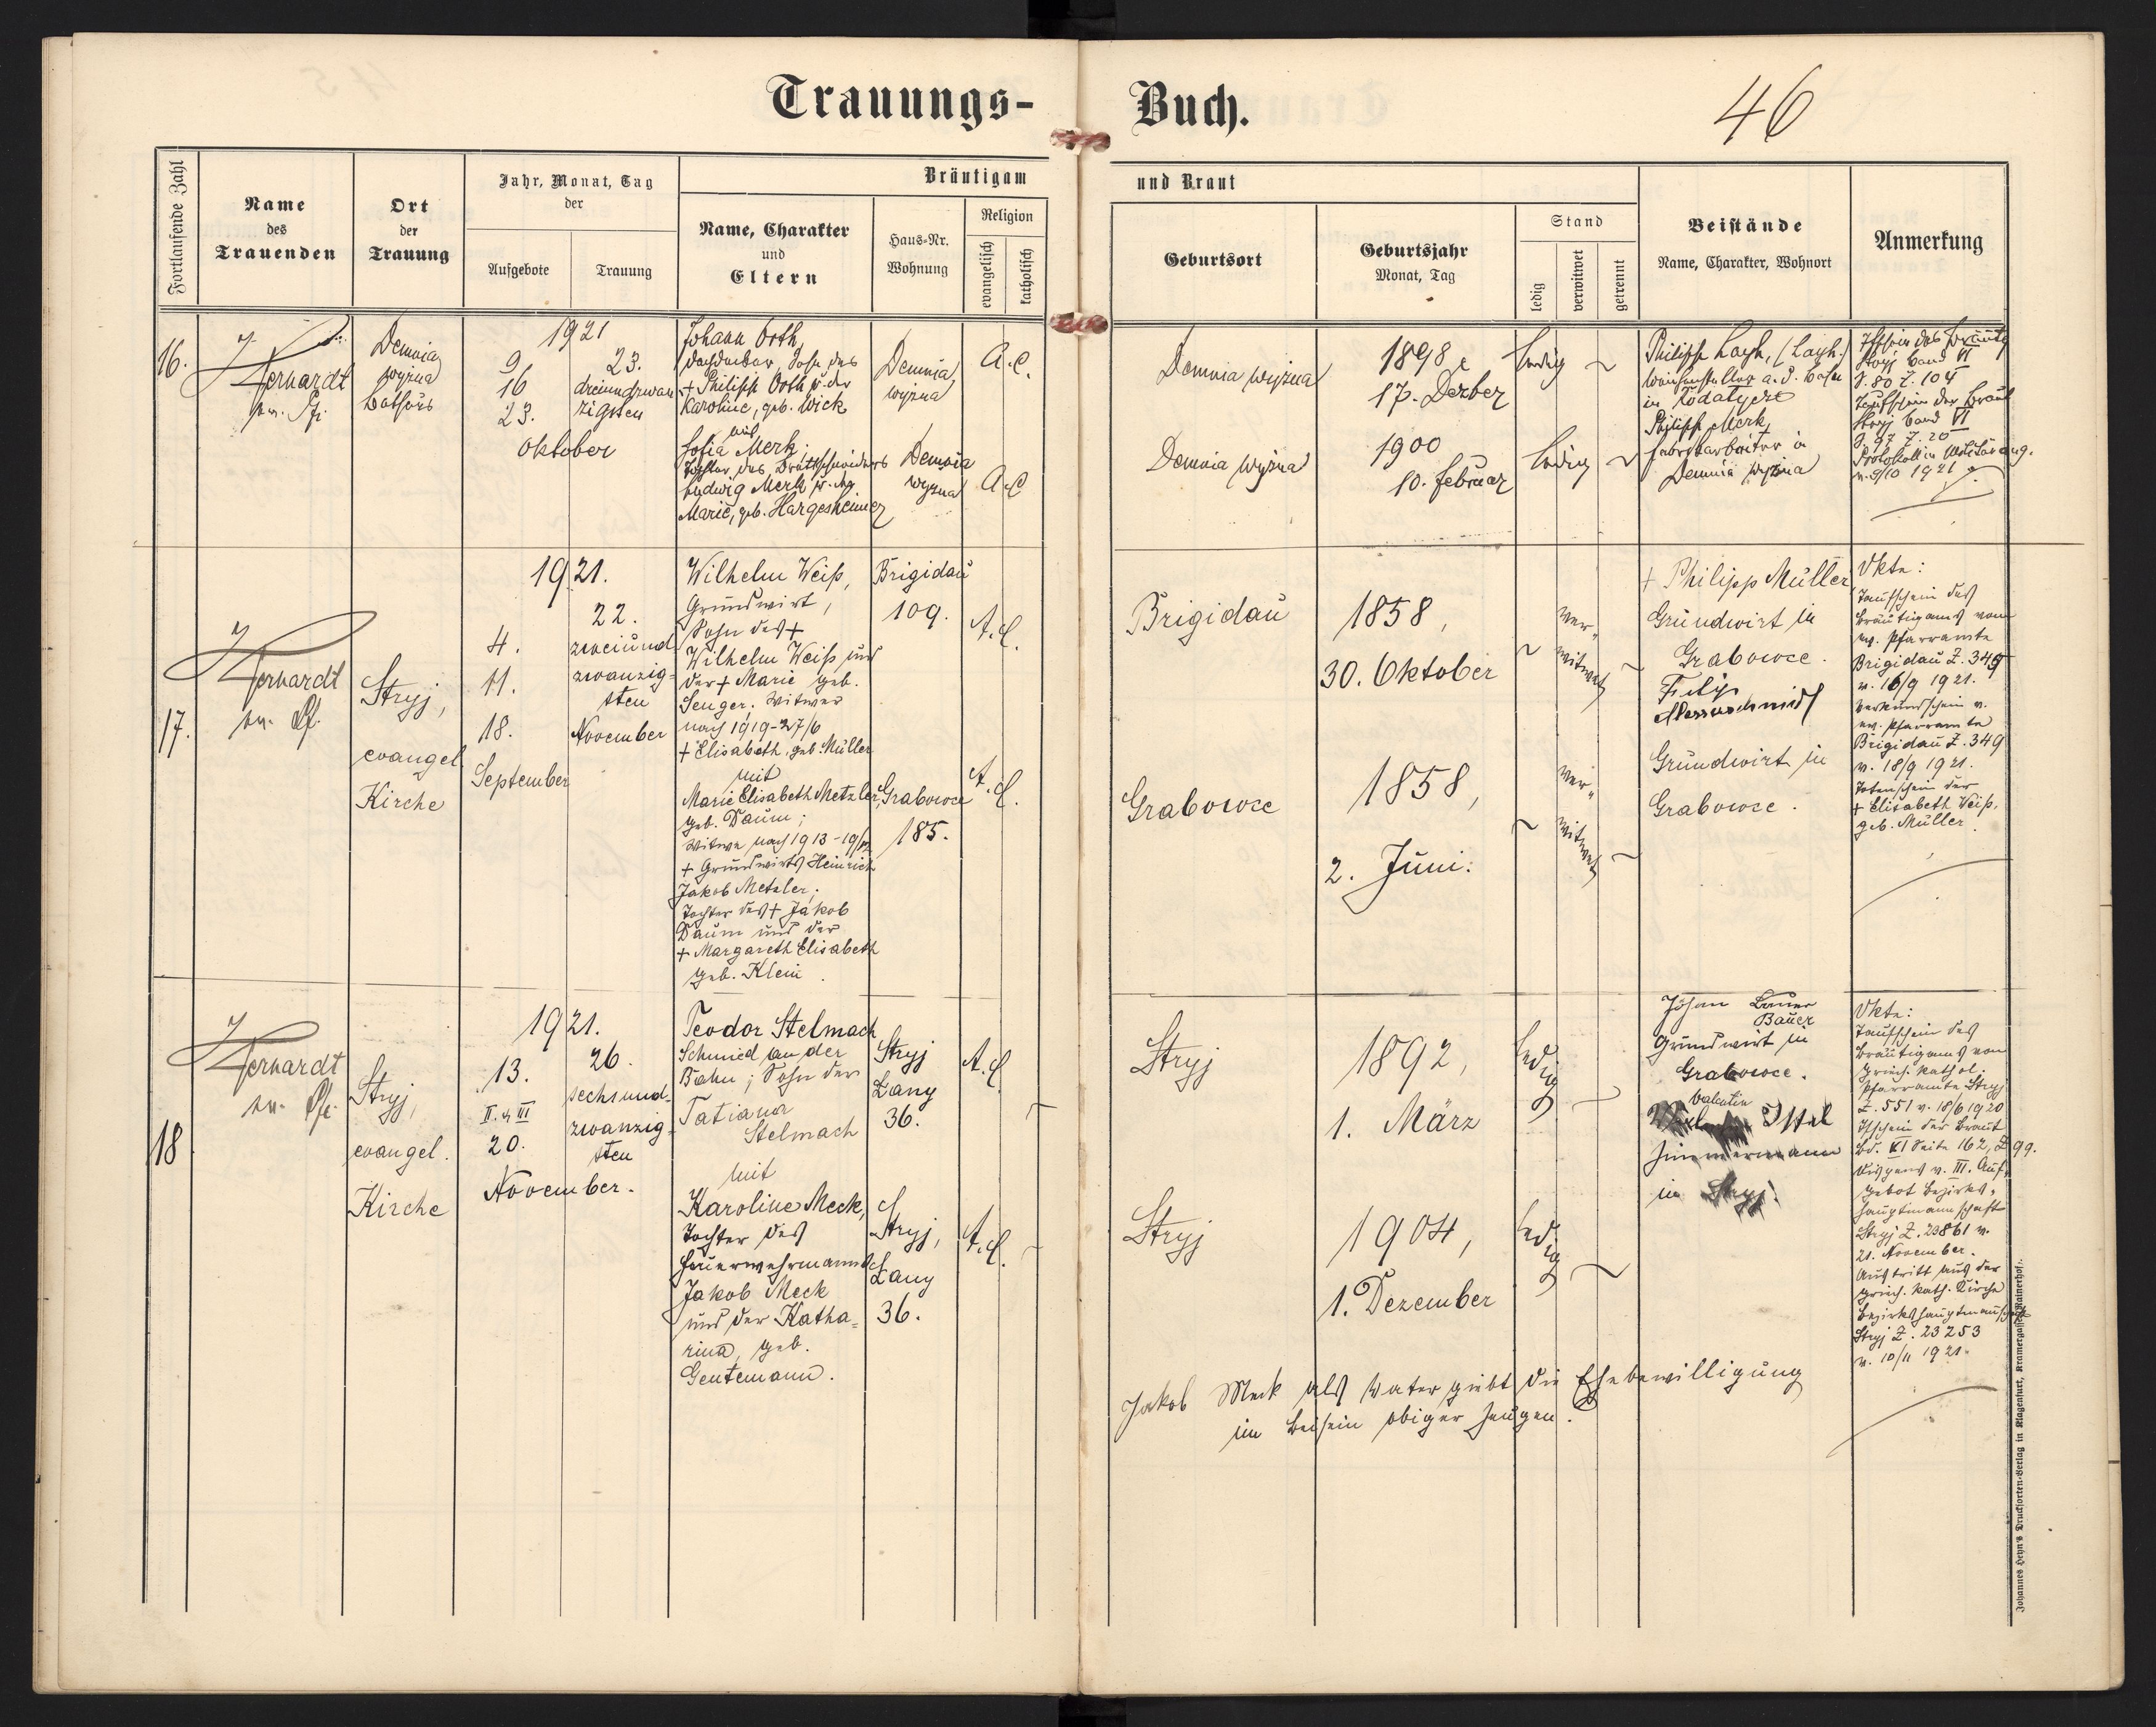 Trauungs-
Buch.
46
Fortlaufende Zahl
Name
des
Trauenden
Ort
der
Trauung
Jahr, Monat, Tag
der
Aufgebote
Trauung
Bräutigam
Name, Charakter
und
Eltern
Haus-Nr.
Wohnung
Religion
evangelisch
katholisch
und Braut
Geburtsort
Geburtsjahr
Monat, Tag
Stand
ledig
verwitwet
getrennt
Beistände
Name, Charakter, Wohnort
Anmerkung
16.
Demnia
wyżna
Bethaus
1921
9.
16
23.
Oktober
23.
dreiundzwan
zigsten
Johann Orth,
Sohn des
+ Philipp Orth u. der
Karoline, geb. Wick
mit
Sofia Merk,
Tochter des Brettschneiders
Ludwig Merk u. der
Marie, geb. Hargesheimer
Demnia
wyżna
Demnia
wyżna
A.C.
A.C.
Demnia wyżna
1898
17. Dezber
ledig
Demnia wyżna
1900
10. Februar
ledig
Philipp Layh, (Layh)
in
Philipp Merk
Fabriksarbeiter in
Demnia wyżna
Tfschein des Bräutig
Stryj Band VI
S. 80 Z. 104
Taufschein der Braut
Stryj Band VI
S. 97 Z. 20
Protokoll in
v. 9/10 1921
17.
Stryj,
evangel.
Kirche
1921.
4.
11.
18.
September
22.
zweiund-
zwanzig-
sten
November
Wilhelm Weiß,
Grundwirt,
Sohn des +
Wilhelm Weiß und
der + Marie geb.
Senger. Witwer
nach 1919-27/6
+ Elisabeth, geb. Müller
mit
Marie Elisabeth Metzler,
geb. Daum;
Witwe nach 1913-19/12
+ Grundwirts Heinrich
Jakob Metzler;
Tochter des + Jakob
Daum und der
+ Margareth Elisabeth
geb. Klein.
Brigidau
109.
Grabowce
185.
A.C.
A.C.
Brigidau
1858,
30. Oktober
ver-
witwet
Grabowce
1858,
2. Juni.
ver-
witwet
+ Philipp Müller
Grundwirt in
Grabowce.
Filip
Messerschmidt
Grundwirt in
Grabowce.
Dkte:
Taufschein des
Bräutigams vom
ev. Pfarramte
Brigidau Z. 349
v. 16/9 1921.
Verkündschein v.
ev. Pfarramte
Brigidau Z. 349
v. 18/9 1921.
Totenschein der
+ Elisabeth Weiß,
geb. Müller.
18
Stryj,
evangel.
Kirche
1921.
13.
II. u. III
20.
November.
26.
sechsund-
zwanzig-
sten
Teodor Stelmach
Schmied an der
Bahn; Sohn der
Tatiana
Stelmach
mit
Karoline Meck,
Tochter des
Feuerwehrmanns
Jakob Meck
und der Katha-
rina, geb.
Gentemann.
Stryj
Lany
36.
Stryj,
Lany
36.
A.C.
A.C.
Stryj
1892,
1. März
ledig
Stryj
1904,
1. Dezember
ledig
Johann Bauer
Bauer
Grundwirt in
Grabowce.
Valentin
Ittel
Zimmermann
in Stryj.
Dkte:
Taufschein des
Bräutigams vom
griech. kathol.
Pfarramte Stryj
Z. 551 v. 18/6 1920
Tfschein der Braut
Bd. VI Seite 162, Z 99.
Dispens v. III. Auf-
gebot Bezirks-
hauptmannschaft
Stryj Z. 23861 v.
21. November.
Austritt aus der
griech. kath. Kirche
Bezirkshauptmannschaft
Stryj Z. 23253
v. 10/11 1921.
Jakob Meck als Vater giebt die Ehebewilligung
im Beisein obiger Zeugen.